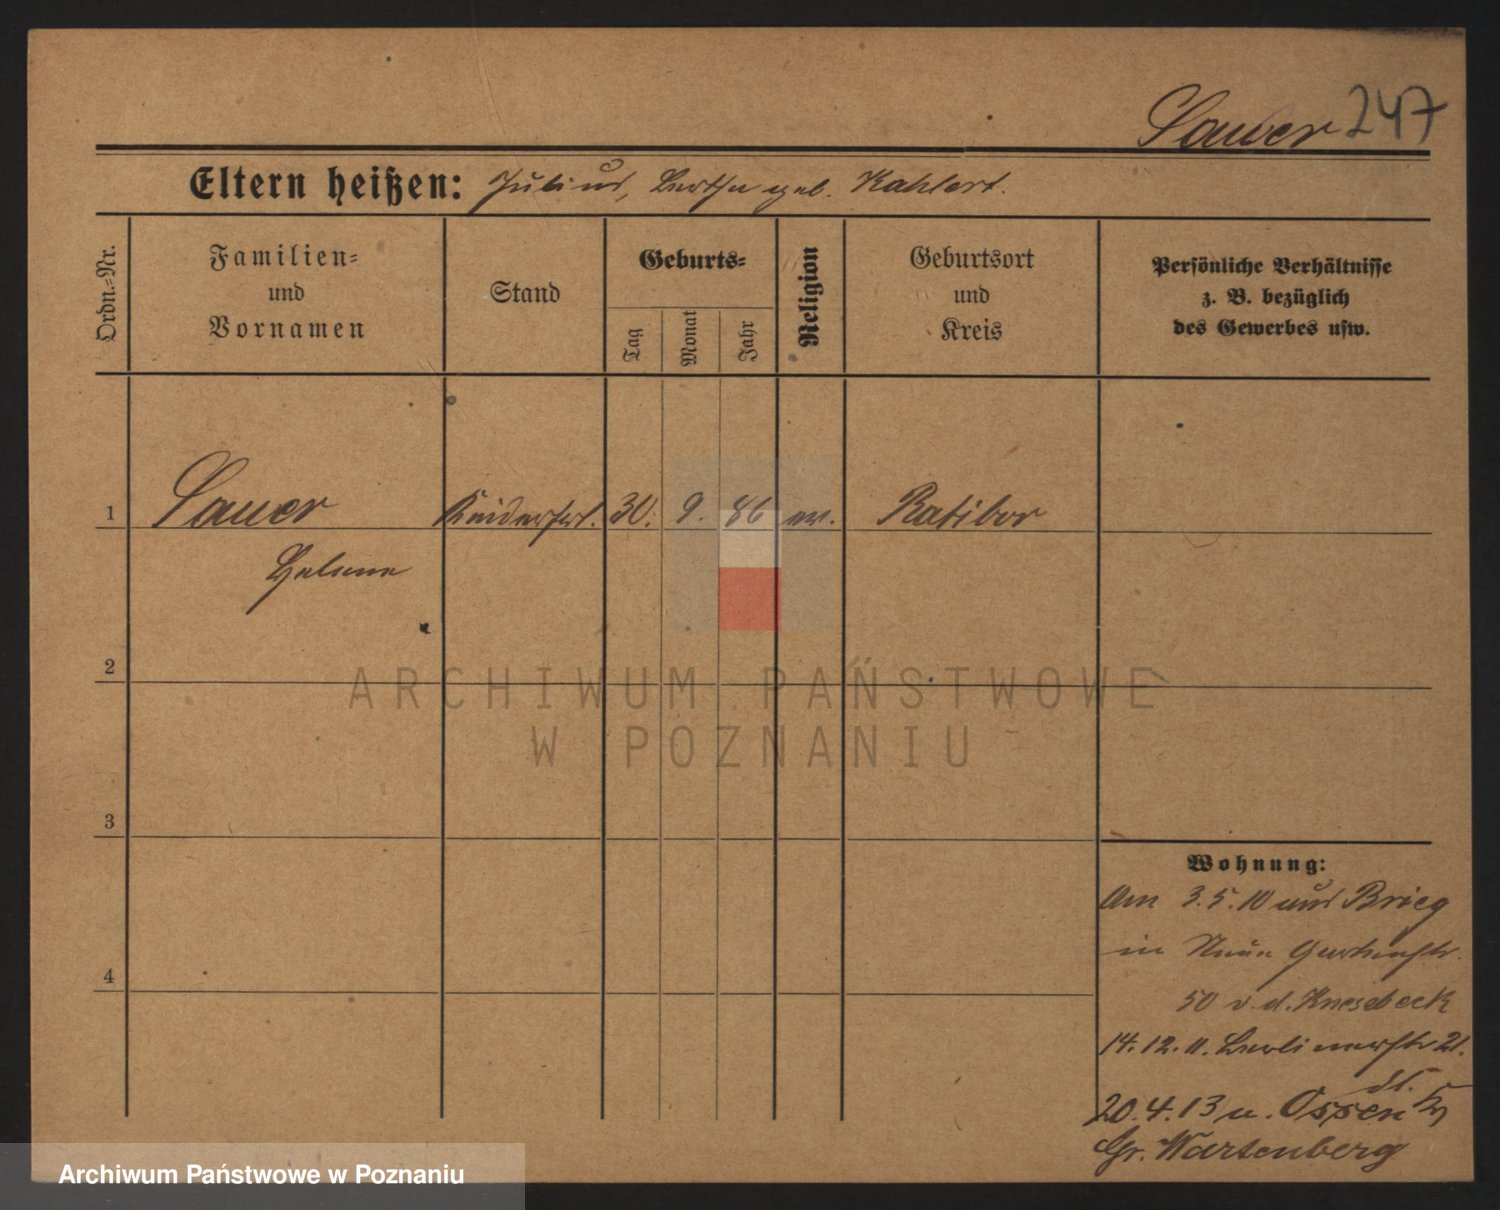 Sauer 247
Eltern heißen: Julius, Bertha geb. Kahlert.
Ordn.-Nr.
Familien-
und
Vornamen
Stand
Geburts-
Tag
Monat
Jahr
Religion
Geburtsort
und
Kreis
Persönliche Verhältnisse
z. B. bezüglich
des Gewerbes usw.
1 Sauer Kinderfrl. 30. 9. 86 ev. Ratibor
Helene
2
ARCHIWUM PAŃSTWOWE
W POZNANIU
3
Wohnung:
Am 3.5.10 aus Brieg
in Neue Gartenstr.
4
50 v. d. Knesebeck
14.12.11. Berlinerstr 21.
20.4.13 n. Ossen
Gr. Wartenberg
Archiwum Państwowe w Poznaniu